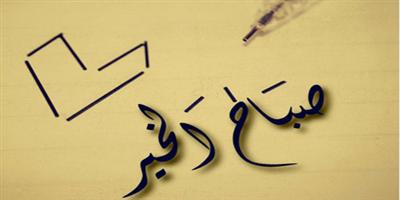 صباح الخير